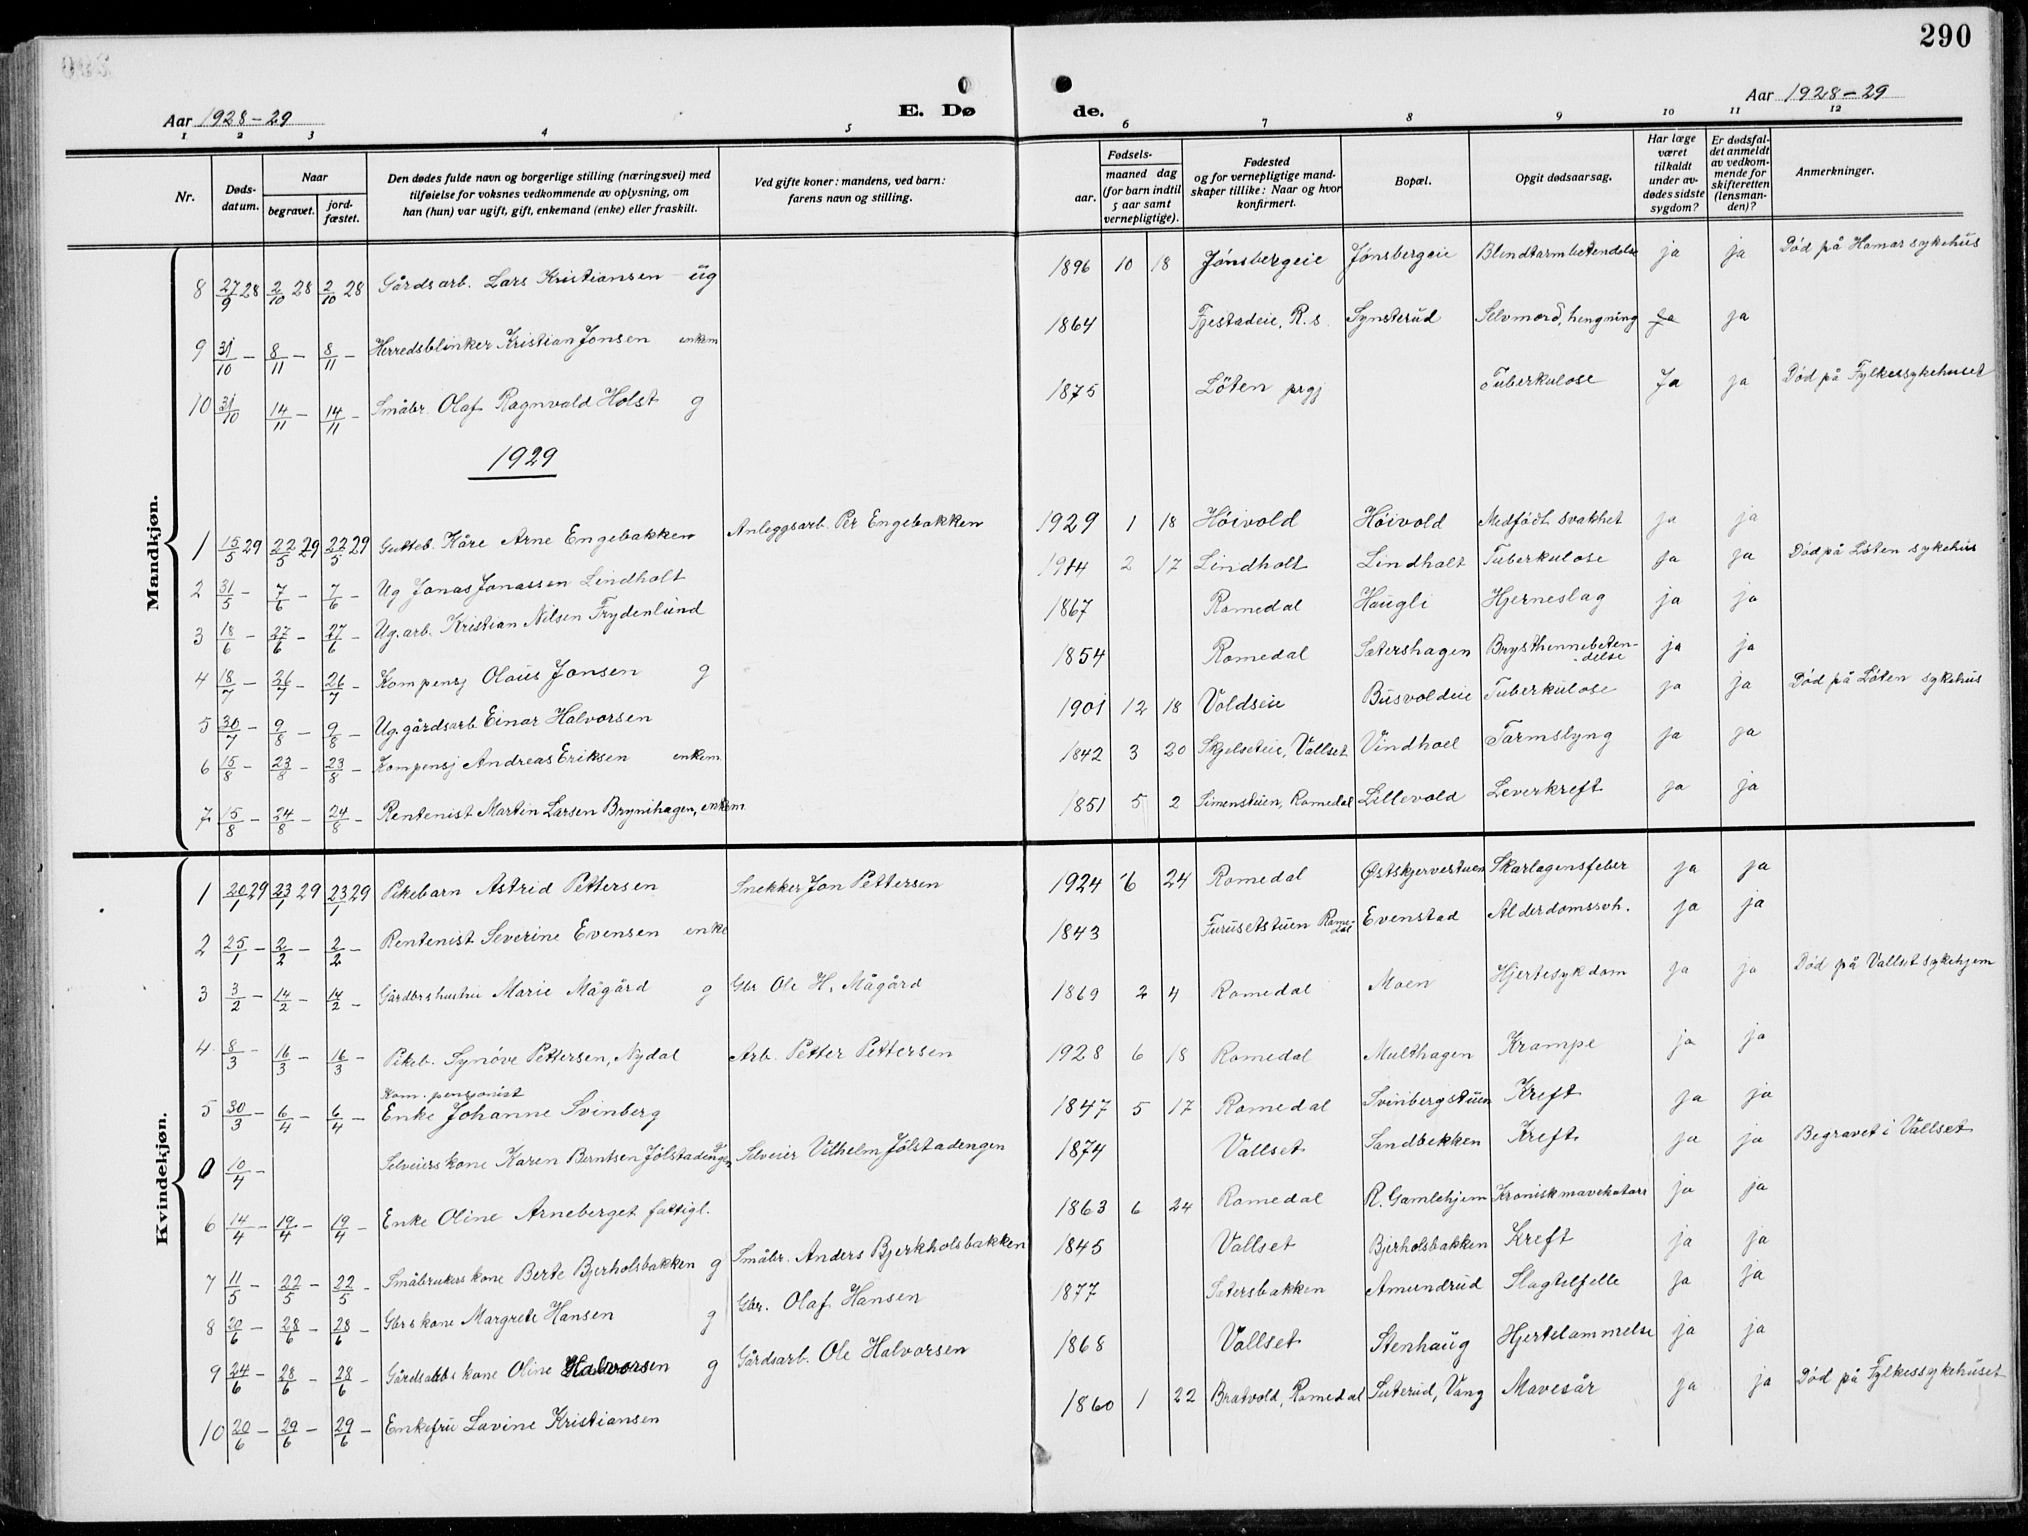 290
Aar 1928-29
E. Dø
de.
Aar 1928-29
1 2 3 4 5 6 7 8 9 10 11 12
Nr.
Døds-
datum.
Naar
begravet.
jord-
fæstet.
Den dødes fulde navn og borgerlige stilling (næringsvei) med
tilføielse for voksnes vedkommende av oplysning, om
han (hun) var ugift, gift, enkemand (enke) eller fraskilt.
Ved gifte koner: mandens, ved barn:
farens navn og stilling.
Fødsels-
aar.
maaned dag
(for barn indtil
5 aar samt
vernepligtige).
Fødested
og for vernepligtige mand-
skaper tillike: Naar og hvor
konfirmert.
Bopæl.
Opgit dødsaarsag.
Har læge
været
tilkaldt
under av-
dødes sidste
sygdom?
Er dødsfal-
det anmeldt
av vedkom-
mende for
skifteretten
(lensman-
den)?
Anmerkninger.
Mandkjøn.
8 27/9 28 2/10 28 2/10 28 Gårdsarb. Lars Kristiansen - ug 1896 10 18 Jønsbergeie Jønsbergeie Blindtarmbetendelse ja ja Død på Hamar sykehus
9 31/10 - 8/11 - 8/11 - Herredsblinker Kristian Jonsen enkem 1864 Fjestadeie, R. s. Synsterud Selvmord, hengning ja ja
10 31/10 14/11 - 14/11 - Småbr. Olaf Ragnvald Holst g 1875 Löten prgj Tuberkulose Ja ja Død på Fylkessykehuset
1929
1 15/5 29 22/5 29 22/5 29 Gutteb. Kåre Arne Engebakken Anleggsarb. Per Engebakken 1929 1 18 Höivold Höivold Medfödt svakhet ja ja
2 31/5 - 7/6 - 7/6 - Ug Jonas Jonassen Lindholt 1914 2 17 Lindholt Lindholt Tuberkulose ja ja Død på Löten sykehus
3 18/6 - 27/6 - 27/6 - Ug. arb. Kristian Nilsen Frydenlund 1867 Romedal Haugli Hjerneslag ja ja
4 18/7 - 26/7 - 26/7 - Kompensj Olaus Jonsen g 1854 Romedal Sætershagen Brysthinnebeten-
delse ja ja
5 30/7 - 9/8 - 9/8 - Ug. gårdsarb Einar Halvorsen 1901 12 18 Voldseie Busvoldeie Tuberkulose ja ja Død på Löten sykehus
6 15/8 - 23/8 - 23/8 - Kompensj Andreas Eriksen enkem 1842 3 20 Skjelseteie, Vallset Vindhoel Tarmslyng ja ja
7 15/8 - 24/8 - 24/8 - Rentenist Martin Larsen Brynihagen, enkem 1851 5 2 Simenstuen, Romedal Lillevold Leverkreft ja ja
Kvindekjøn.
1 20/1 29 23/1 29 23/1 29 Pikebarn Astrid Pettersen Snekker Jon Pettersen 1924 6 24 Romedal Østskjervertuen Skarlagensfeber ja ja
2 25/1 - 2/2 - 2/2 - Rentenist Severine Evensen enke 1843 Furusetstuen Rome-
dal Evenstad Alderdomssvh. ja ja
3 3/2 - 14/2 - 14/2 - Gårdbrshustru Marie Mågård g Gbr Ole H. Mågård 1869 2 4 Romedal Moen Hjertesykdom ja ja Død på Vallset sykehjem
4 8/3 - 16/3 - 16/3 - Pikeb. Synöve Pettersen, Nydal Arb. Petter Pettersen 1928 6 18 Romedal Multhagen Krampe ja ja
Kom. pensionist
5 30/3 - 6/4 - 6/4 - Enke Johanne Svinberg 1847 5 17 Romedal Svinbergstuen Kreft ja ja
0 10/4 - Selveierskone Karen Berntsen Jølstadengen Selveier Vilhelm Jølstadengen 1874 Vallset Sandbekken Kreft ja ja Begravet i Vallset
6 14/4 - 19/4 - 19/4 - Enke Oline Arneberget fattigl. 1863 6 24 Romedal R. Gamlehjem Kroniskmavekatarr ja ja
7 11/5 - 22/5 - 22/5 - Småbrukerskone Berte Bjerholsbakken g Småbr. Anders Bjerkholsbakken 1845 Vallset Bjerholsbakken Kreft ja ja
8 20/6 - 28/6 - 28/6 - Gbrskone Margrete Hansen g Gbr. Olaf Hansen 1877 Sætersbakken Amundrud Slagtilfelle ja ja
9 24/6 - 28/6 - 28/6 - Gårdsarbskone Oline Halvorsen g Gårdsarb. Ole Halvorsen 1868 Vallset Stenhaug Hjertelammelse ja ja
10 20/6 - 29/6 - 29/6 - Enkefru Lavine Kristiansen 1860 1 22 Bratvold, Romedal Suterud, Vang Mavesår ja ja Død på Fylkessykehuset